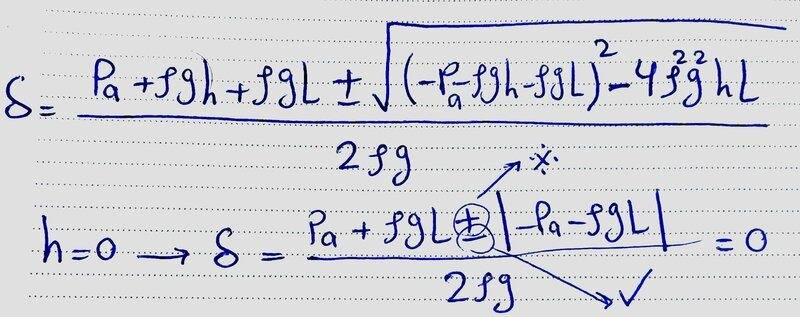 δ = (Pa + ρgh + ρgL ± √((-Pa - ρgh - ρgL)² - 4ρ²g²hL)) / 2ρg
h=0 → δ = (Pa + ρgL ± |-Pa - ρgL|) / 2ρg = 0